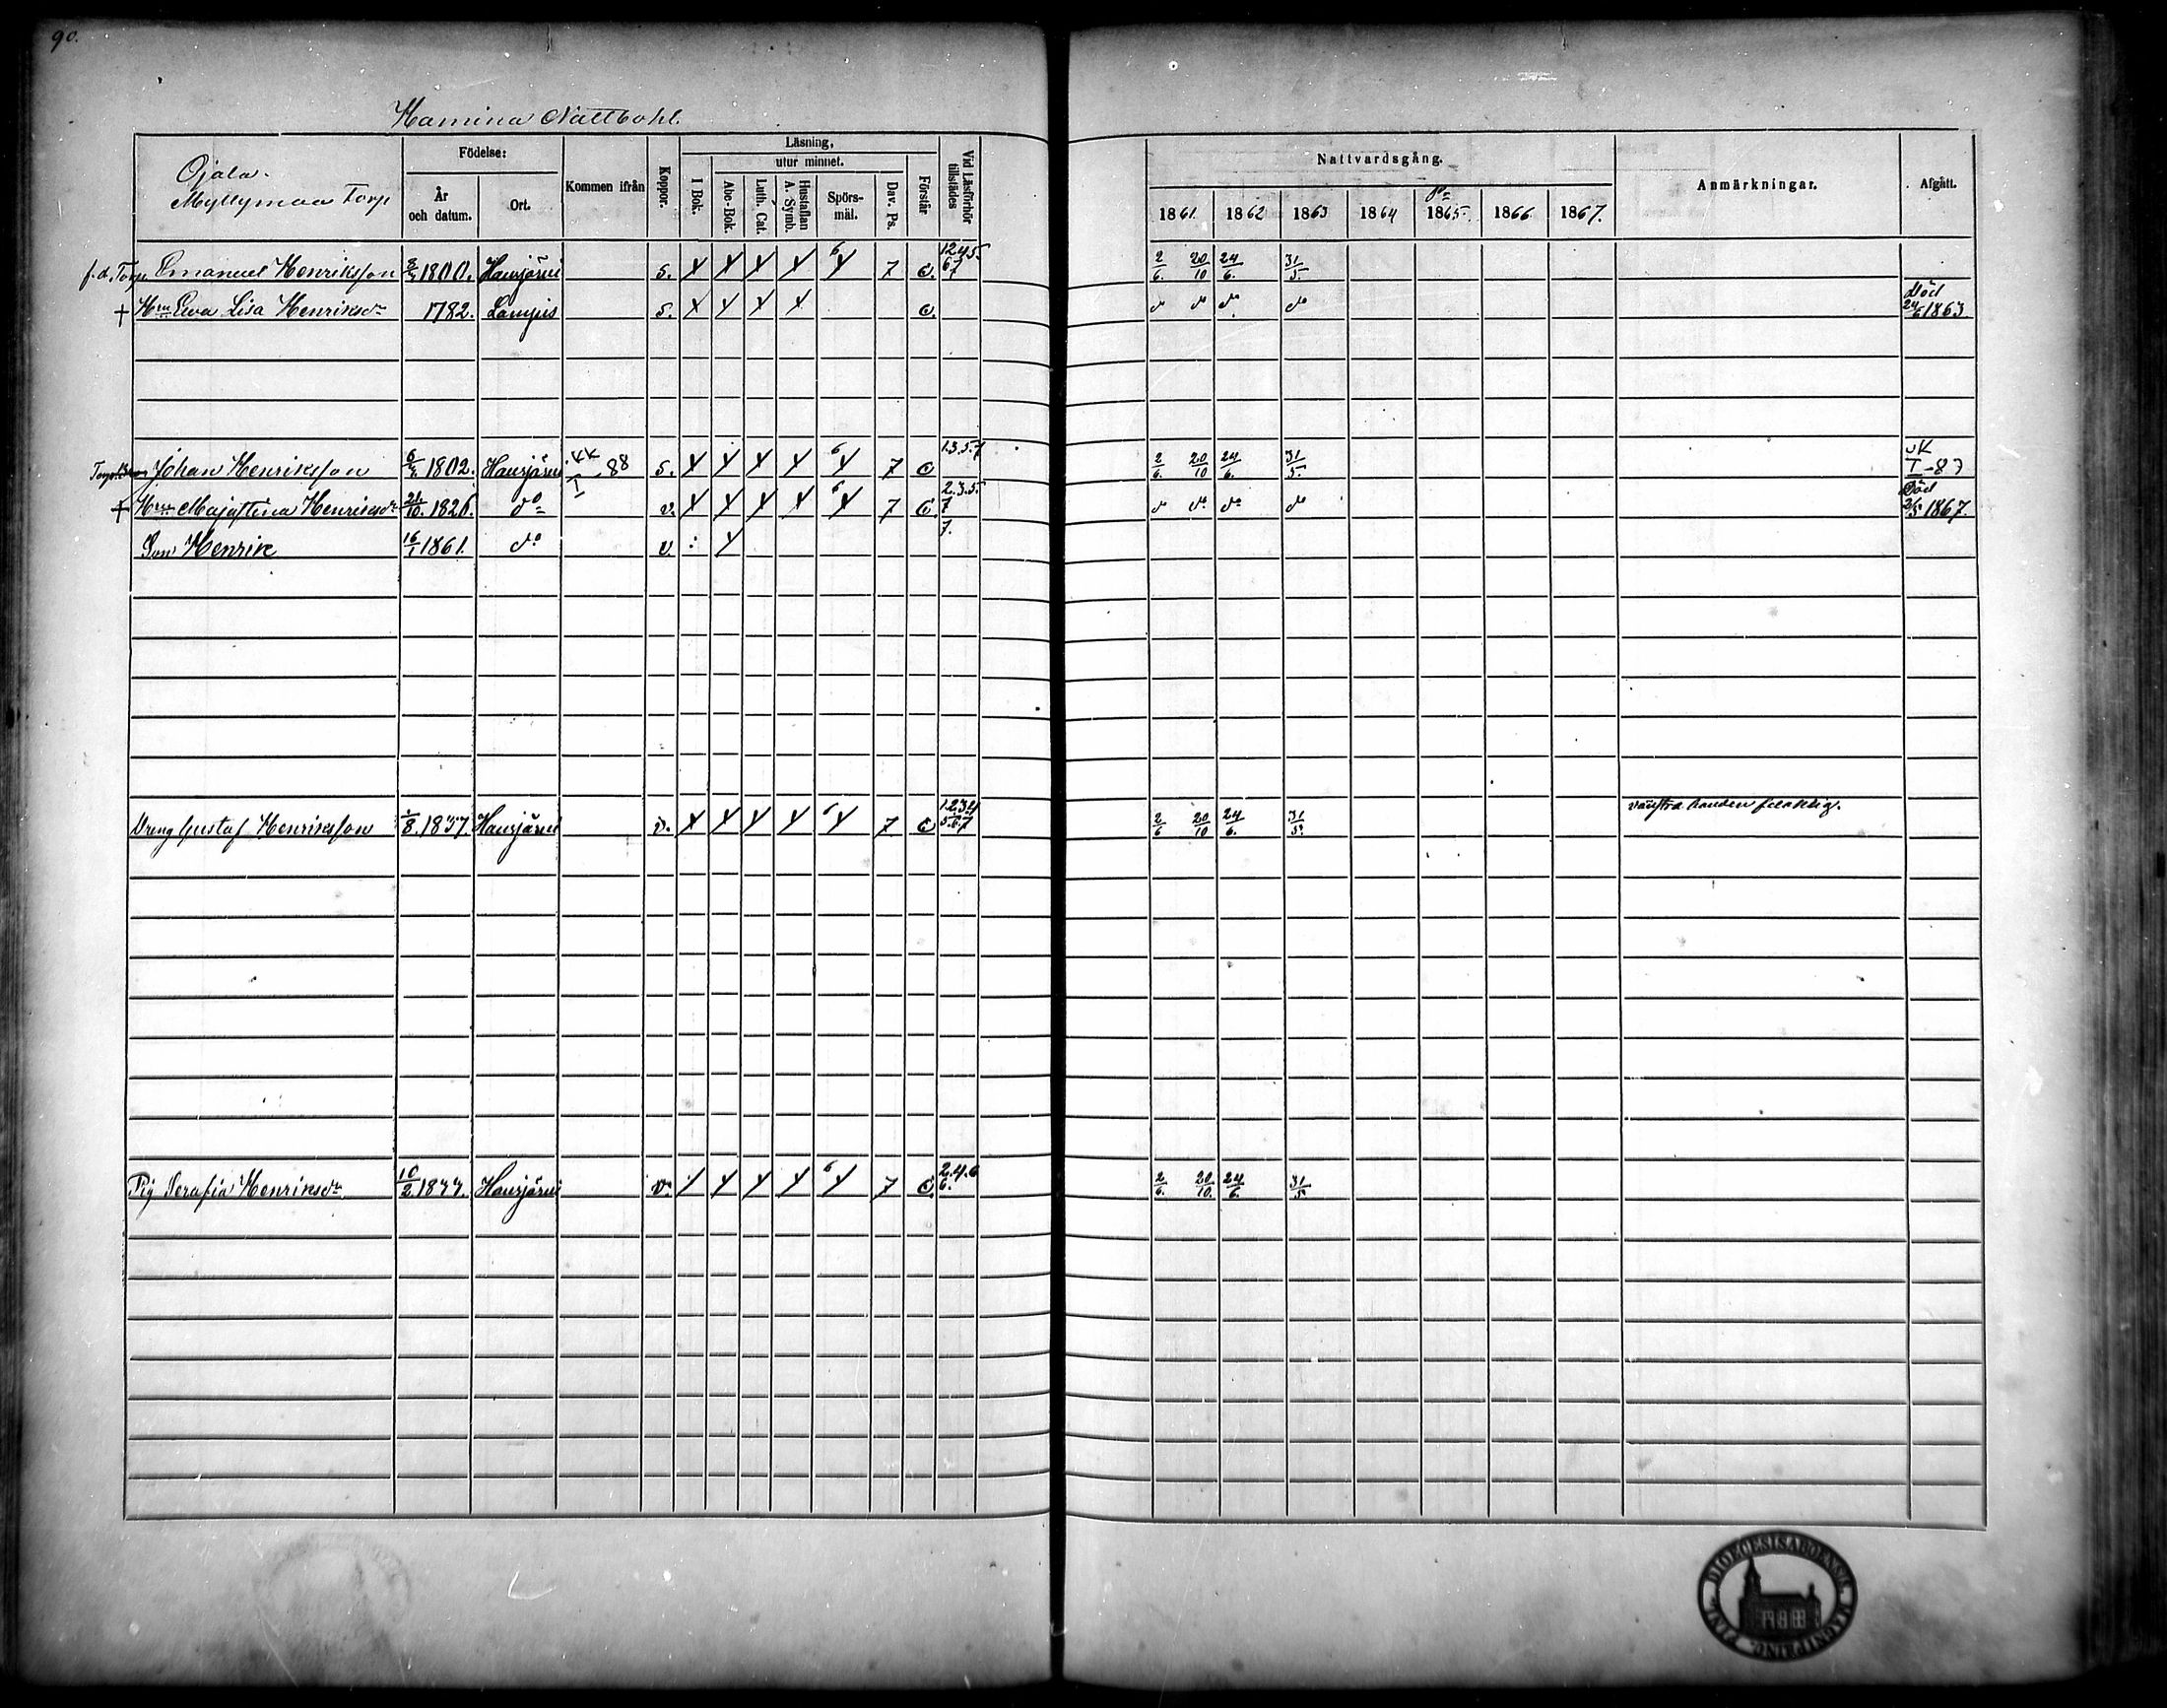 90.
Hamina Nattbohl.
Ojala.
Myllymaa Torp
Födelse:
År och datum.
Ort.
Kommen ifrån
Koppor.
Läsning,
utur minnet.
I Bok.
Abc-Bok.
Luth. Cat.
Hustaflan A. Symb.
Spörs-mål.
Dav. Ps.
Förstår
Vid Läsförhör tillstädes
Nattvardsgång.
1861. 1862 1863 1864 1865. 1866 1867.
Anmärkningar.
Afgått.
f.d. Torp. Emanuel Henriksson 1800. Hausjärvi s. 7 c. 1245. 67 2/6. 20/10 24/6. 31/5.
† Hru Eva Lisa Henriksdr 1782. Lampis s. c. do do do do Död 24/6 1863
Johan Henriksson 6/4 1802. Hausjärvi KK I - 88 s. 7 c 1.3.5.7 2/6. 20/10 24/6. 31/5. KK I - 87
† Hru Majastina Henriksdr 21/10. 1826. do v. 7 c. 2.3.5. 7 do do do do Död 2/5 1867.
Son Henrik 16/1 1861. do v. 7.
Dreng Gustaf Henriksson 1/8. 1837. Hausjärvi v. 7 c 1.2.3.4 5.6.7 2/6 20/10 24/6. 31/5. vänstra handen felaktig.
Pig Serafia Henriksdr 10/2. 1844. Hausjärvi v. 7 c. 2.4.6 6. 2/6. 20/10. 24/6. 31/5.
DIOECESIS ABOENSIS MAGNI PRINC. FINL.